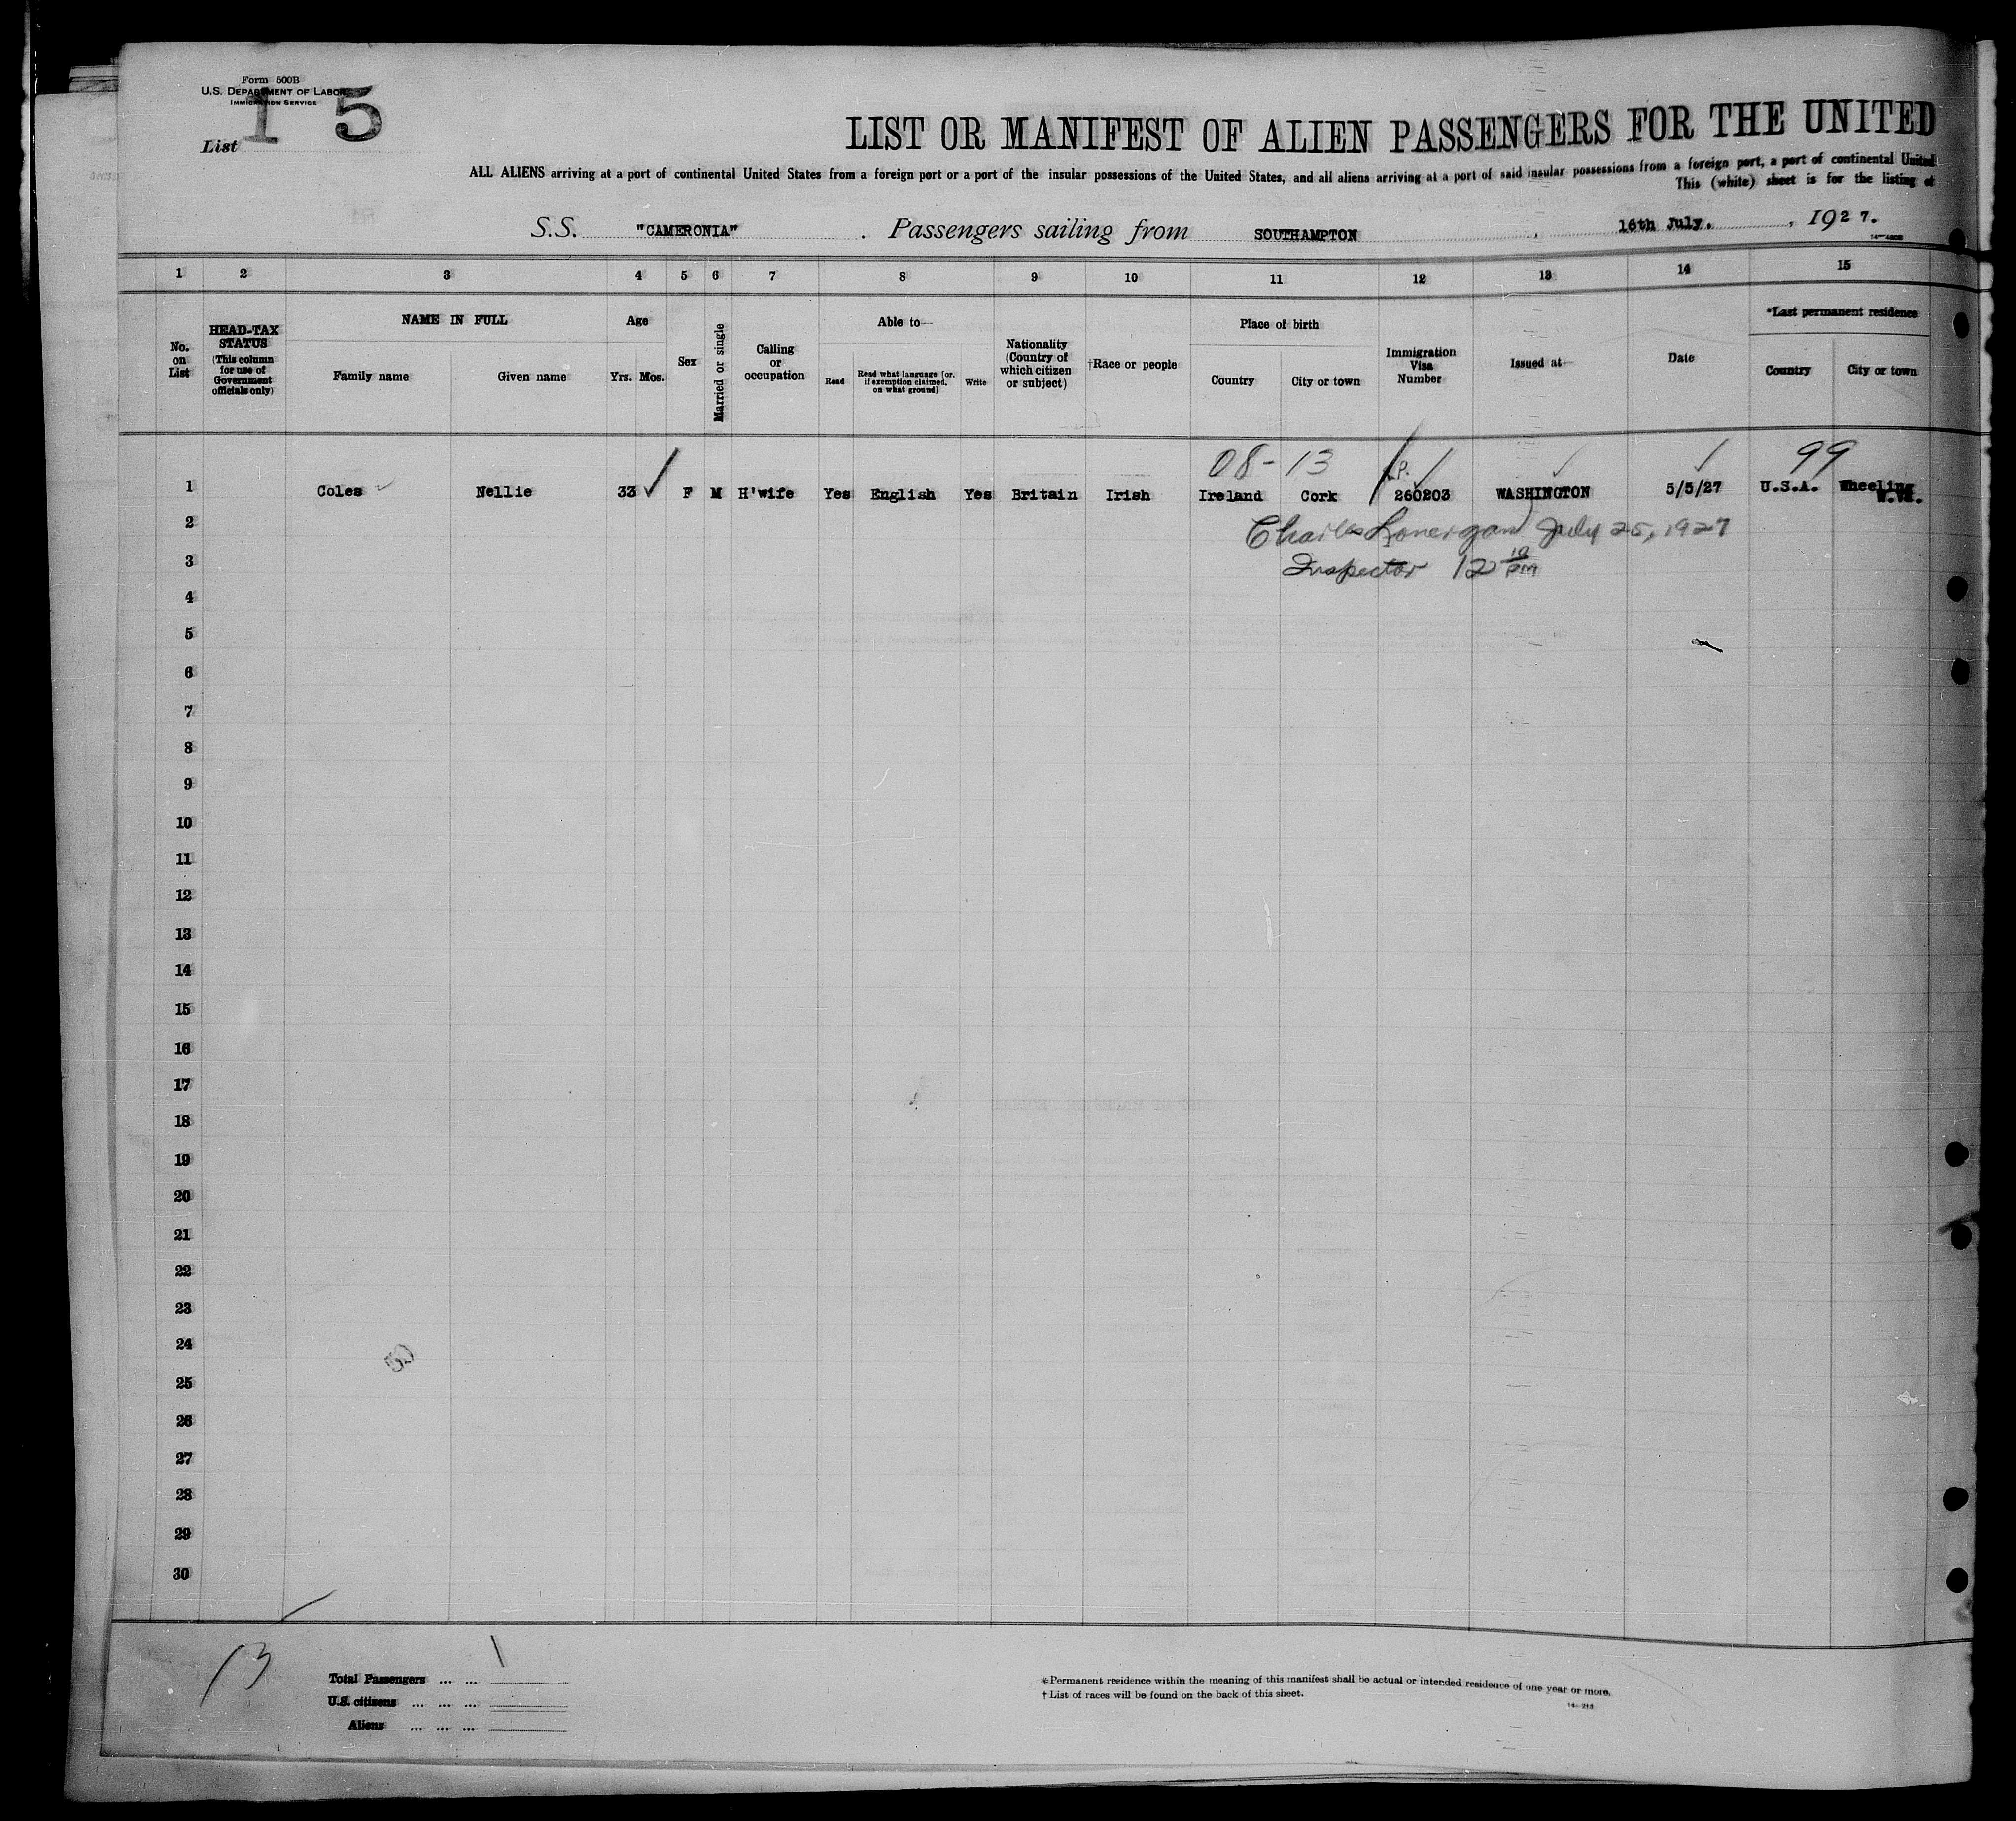 Form 500B
U.S. DEPARTMENT OF LABOR
IMMIGRATION SERVICE
List 15
LIST OR MANIFEST OF ALIEN PASSENGERS FOR THE UNITED
ALL ALIENS arriving at a port of continental United States from a foreign port or a port of the insular possessions of the United States, and all aliens arriving at a port of said insular possessions from a foreign port, a port of continental United
This (white) sheet is for the listing of
S.S. "CAMERONIA" . Passengers sailing from SOUTHAMPTON , 16th July. , 1927.
1 2 3 4 5 6 7 8 9 10 11 12 13 14 15
No. on List
HEAD-TAX STATUS (This column for use of Government officials only)
NAME IN FULL
Family name Given name
Age
Yrs. Mos.
Sex
Married or single
Calling or occupation
Able to—
Read
Read what language [or, if exemption claimed, on what ground]
Write
Nationality (Country of which citizen or subject)
†Race or people
Place of birth
Country City or town
Immigration Visa Number
Issued at—
Date
*Last permanent residence
Country City or town
08-13 99
1 Coles Nellie 33 F M H'wife Yes English Yes Britain Irish Ireland Cork 260203 WASHINGTON 5/5/27 U.S.A. Wheeling W.VA.
2 Charles Lonergan July 25, 1927
3 Inspector 12 10 PM
4
5
6
7
8
9
10
11
12
13
14
15
16
17
18
19
20
21
22
23
24
25
26
27
28
29
30
13
Total Passengers ... ... 1
U.S. citizens ... ... ...
Aliens ... ... ...
*Permanent residence within the meaning of this manifest shall be actual or intended residence of one year or more.
† List of races will be found on the back of this sheet.